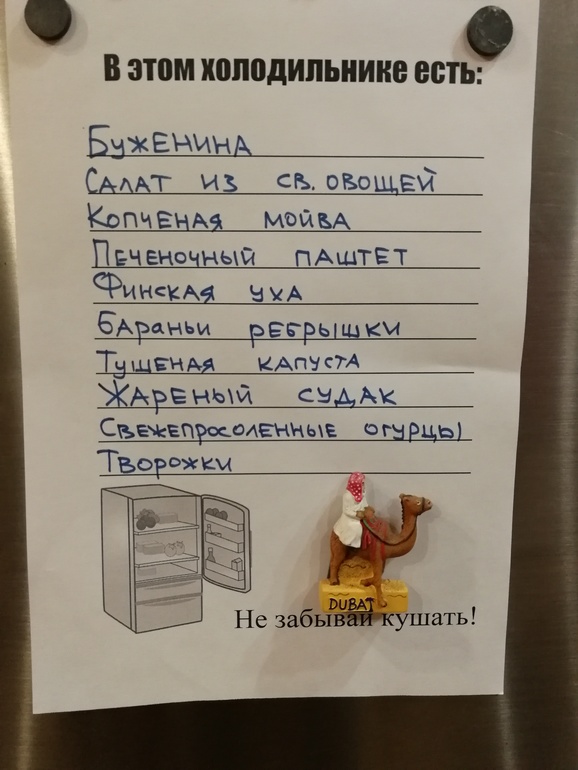 В этом холодильнике есть:
Буженина
Салат из св. овощей
Копченая мойва
Печеночный паштет
Финская уха
Бараньи ребрышки
Тушеная капуста
Жареный судак
Свежепросоленные огурцы
Творожки
DUBAI
Не забывай кушать!